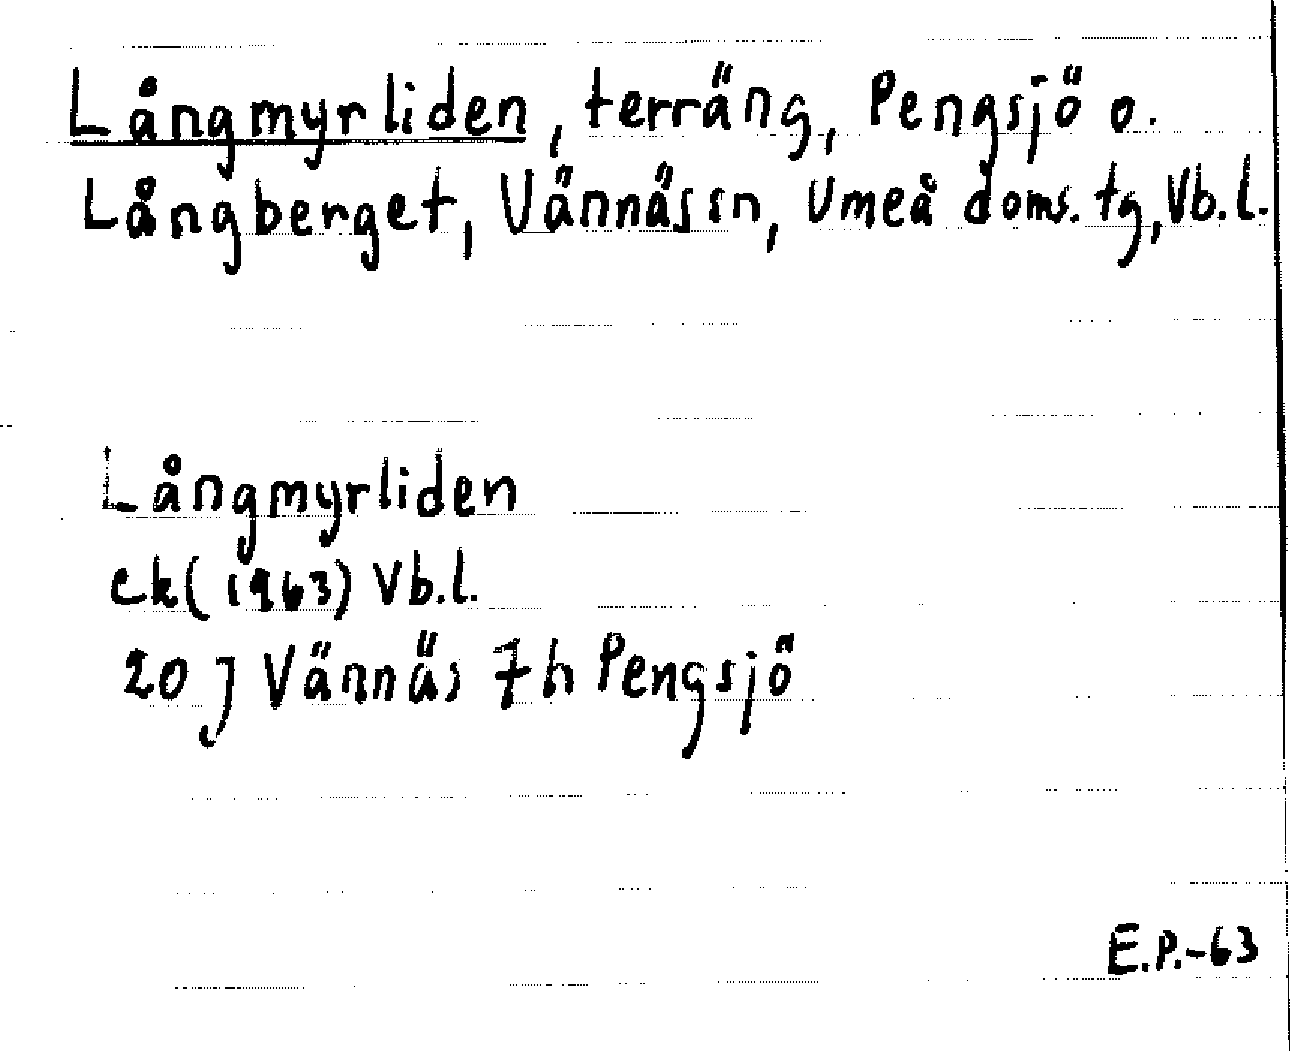 Långmyrliden, terräng, Pengsjö o.
Långberget, Vännäs sn, Umeå doms. tg, Vb.l.
Långmyrliden
ek(1963) Vb.l.
20 J Vännäs 7h Pengsjö
E.P.-63